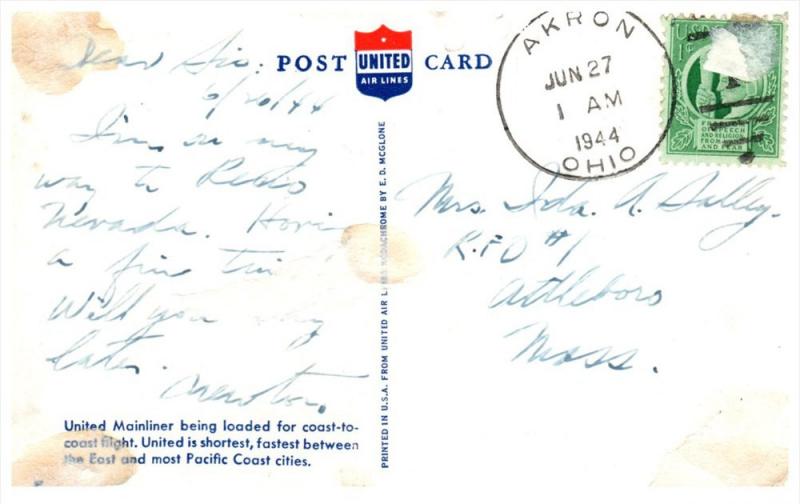 POST UNITED AIR LINES CARD
AKRON
JUN 27
1 AM
1944
OHIO
1¢
FREEDOM
OF SPEECH
AND RELIGION
FROM WANT
AND FEAR
Dear Sis.
6/26/44
I'm on my
way to Reno
Nevada.
a fine
Will you
later.
Newton.
Mrs. Ida. A. Salley.
R.F.D #1
Attleboro
Mass.
United Mainliner being loaded for coast-to-
coast flight. United is shortest, fastest between
the East and most Pacific Coast cities.
PRINTED IN U.S.A. FROM UNITED AIR LINES KODACHROME BY E. D. MCGLONE